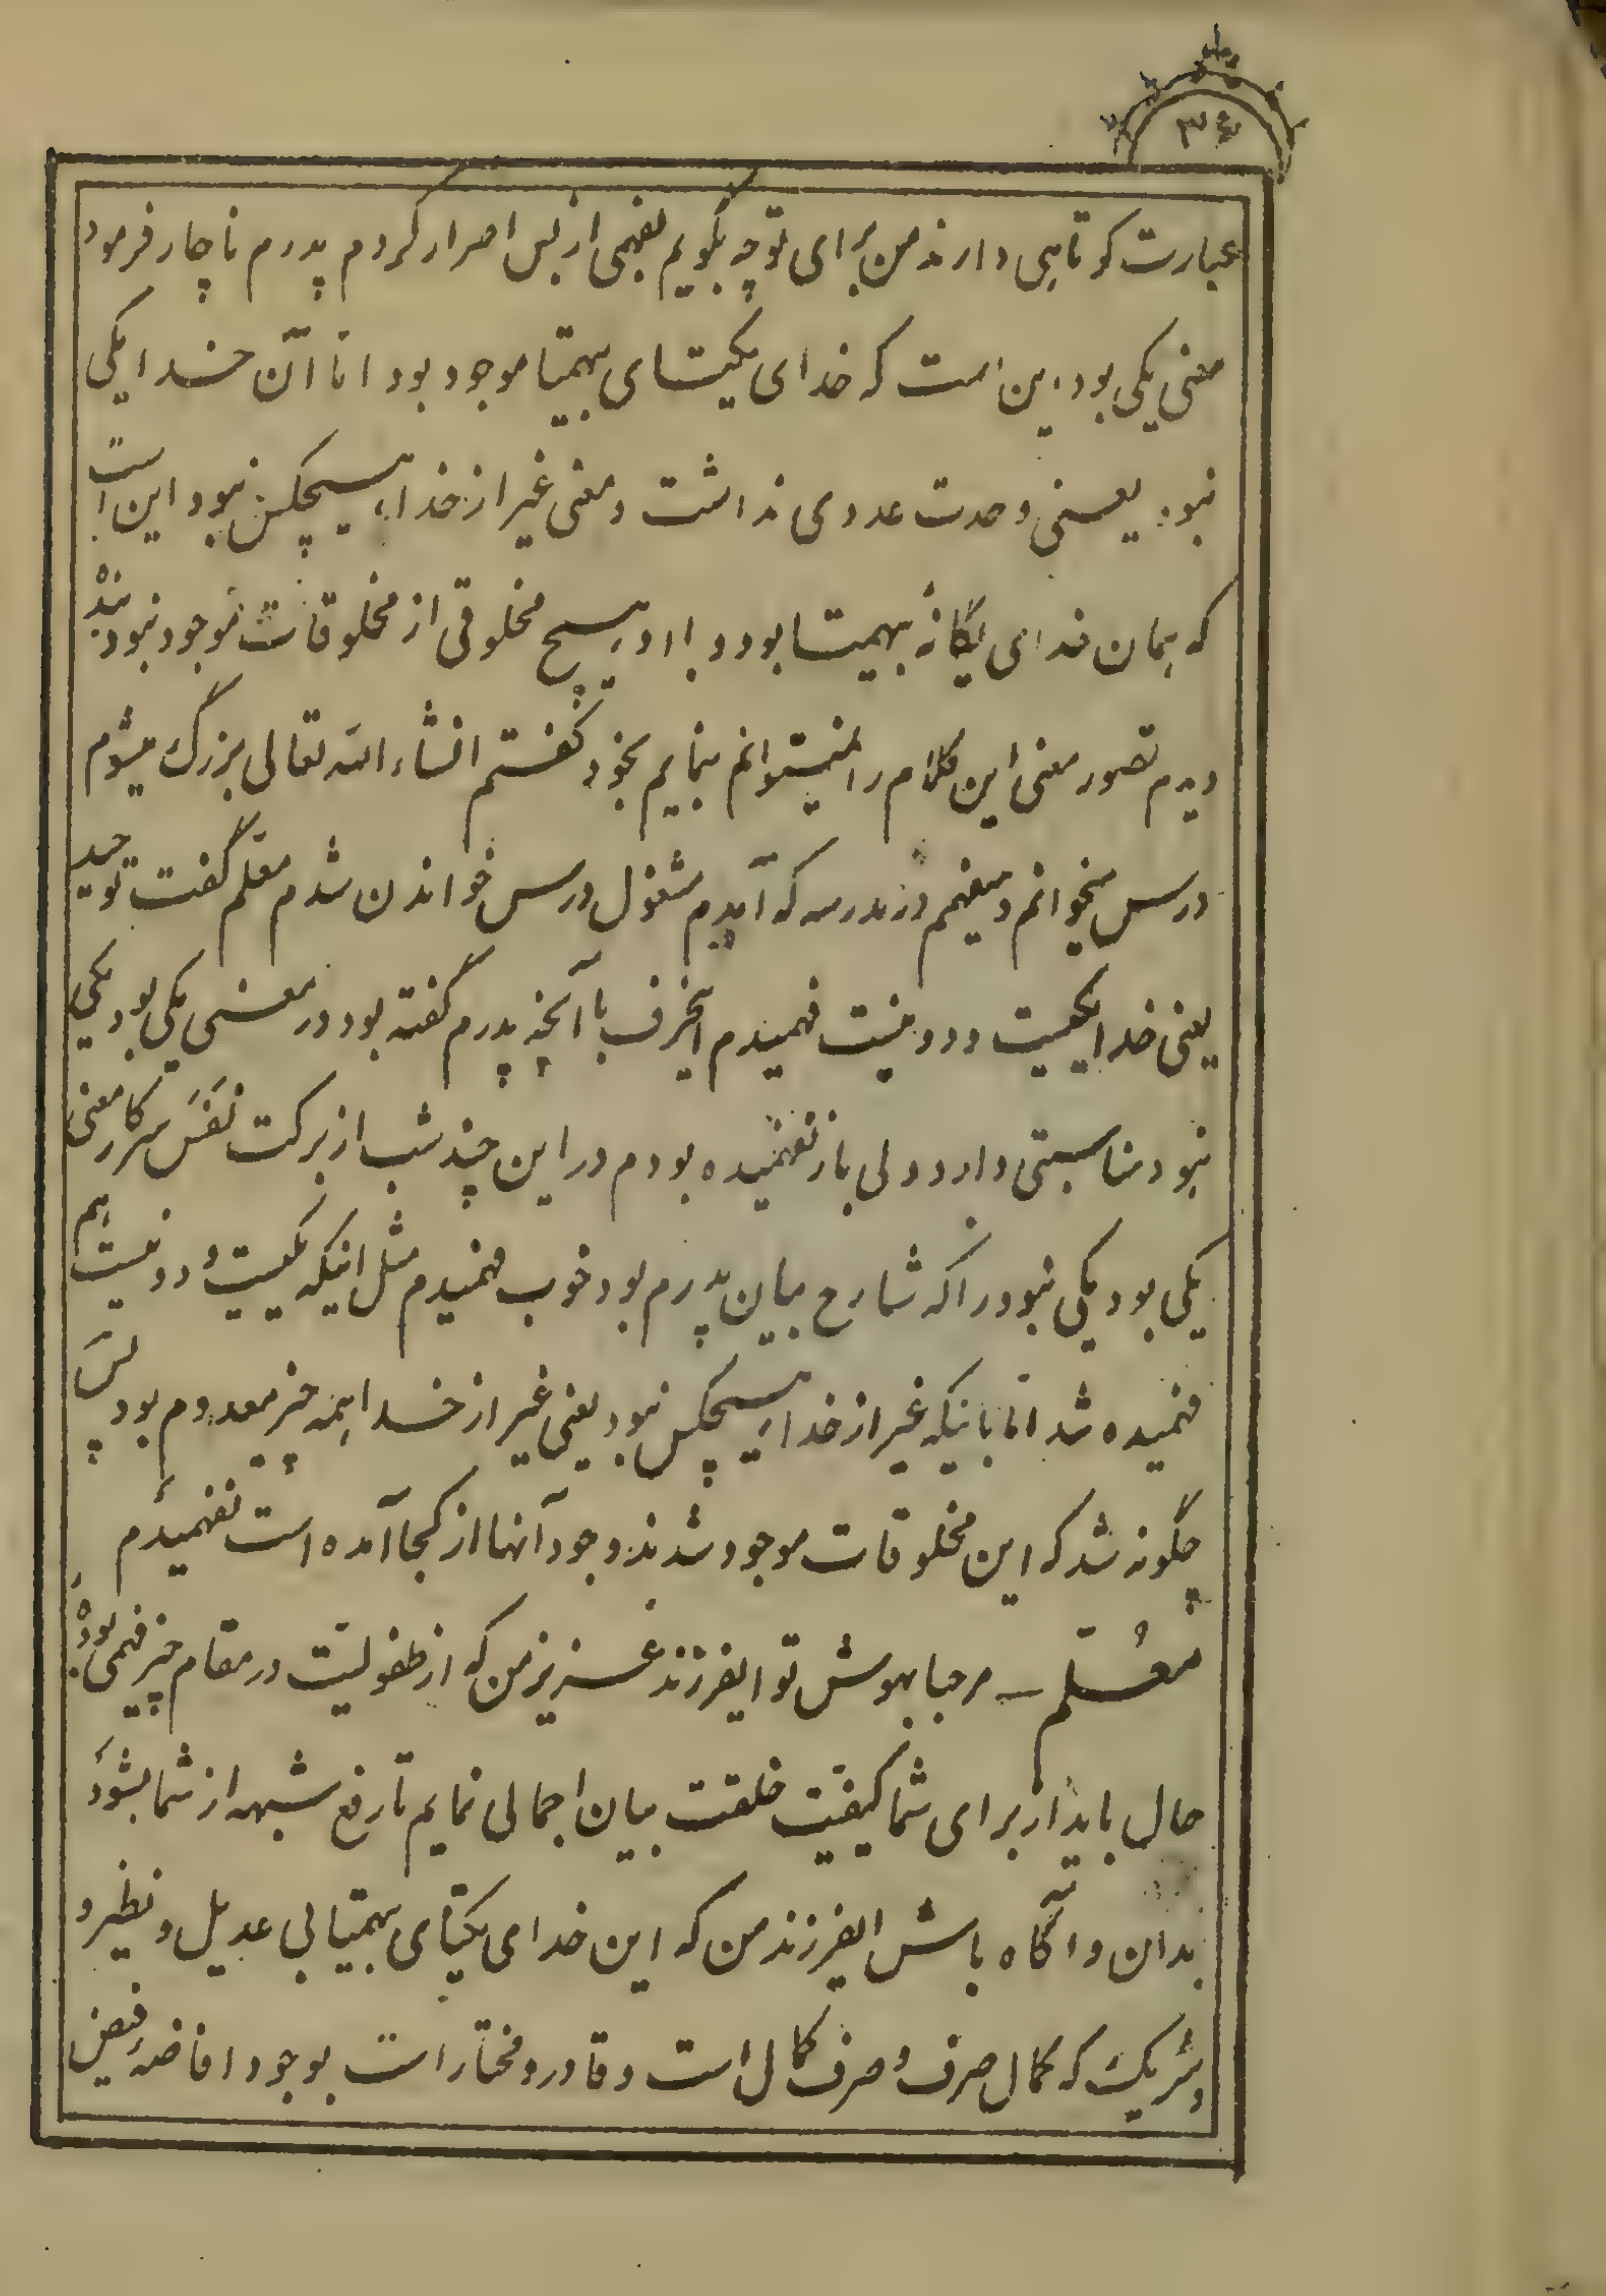 ۳۴
عبارت کوتاهی دارند من برای تو چه بگویم بفهمی از بس اصرار کردم پدرم ناچار فرمود
معنی یکی بود این است که خدای یکتای بیهمتا موجود بود امّا آن خدا یکی
نبود یعنی وحدت عددی نداشت و معنی غیر از خدا هیچکس نبود این است
که همان خدای یگانهٔ بیهمتا بود و با او هیچ مخلوقی از مخلوقات موجود نبودند
دیدم تصور معنی این کلام را نمیتوانم بنمایم بخود گفتم انشاءالله تعالی بزرگ میشوم
درس میخوانم و میفهمم در مدرسه که آمدم مشغول درس خواندن شدم معلم گفت توحید
یعنی خدا یکیست و دو نیست فهمیدم اینحرف با آنچه پدرم گفته بود در معنی یکی بود یکی
نبود مناسبتی دارد ولی باز نفهمیده بودم در این چند شب از برکت نَفَس سرکار معنی
یکی بود یکی نبود را که شارح بیان پدرم بود خوب فهمیدم مثل اینکه یکیست و دو نیست هم
فهمیده شد امّا باینکه غیر از خدا هیچکس نبود یعنی غیر از خدا همه چیز معدوم بود پس
چگونه شد که این مخلوقات موجود شدند وجود آنها از کجا آمده است نفهمیدم
معُلّم ـ مرحبا بهوش تو ایفرزند عزیز من که از طفولیّت در مقام چیز فهمی بودهٔ
حال باید از برای شما کیفیّت خلقت بیان اجمالی نمایم تا رفع شبهه از شما بشود
بدان و آگاه باش ایفرزند من که این خدای یکتای بیهمتا بی عدیل و نظیر و
و شریک که کمال صرف و صرف کمال است و قادر و مختار است بوجود افاضهٔ فیض